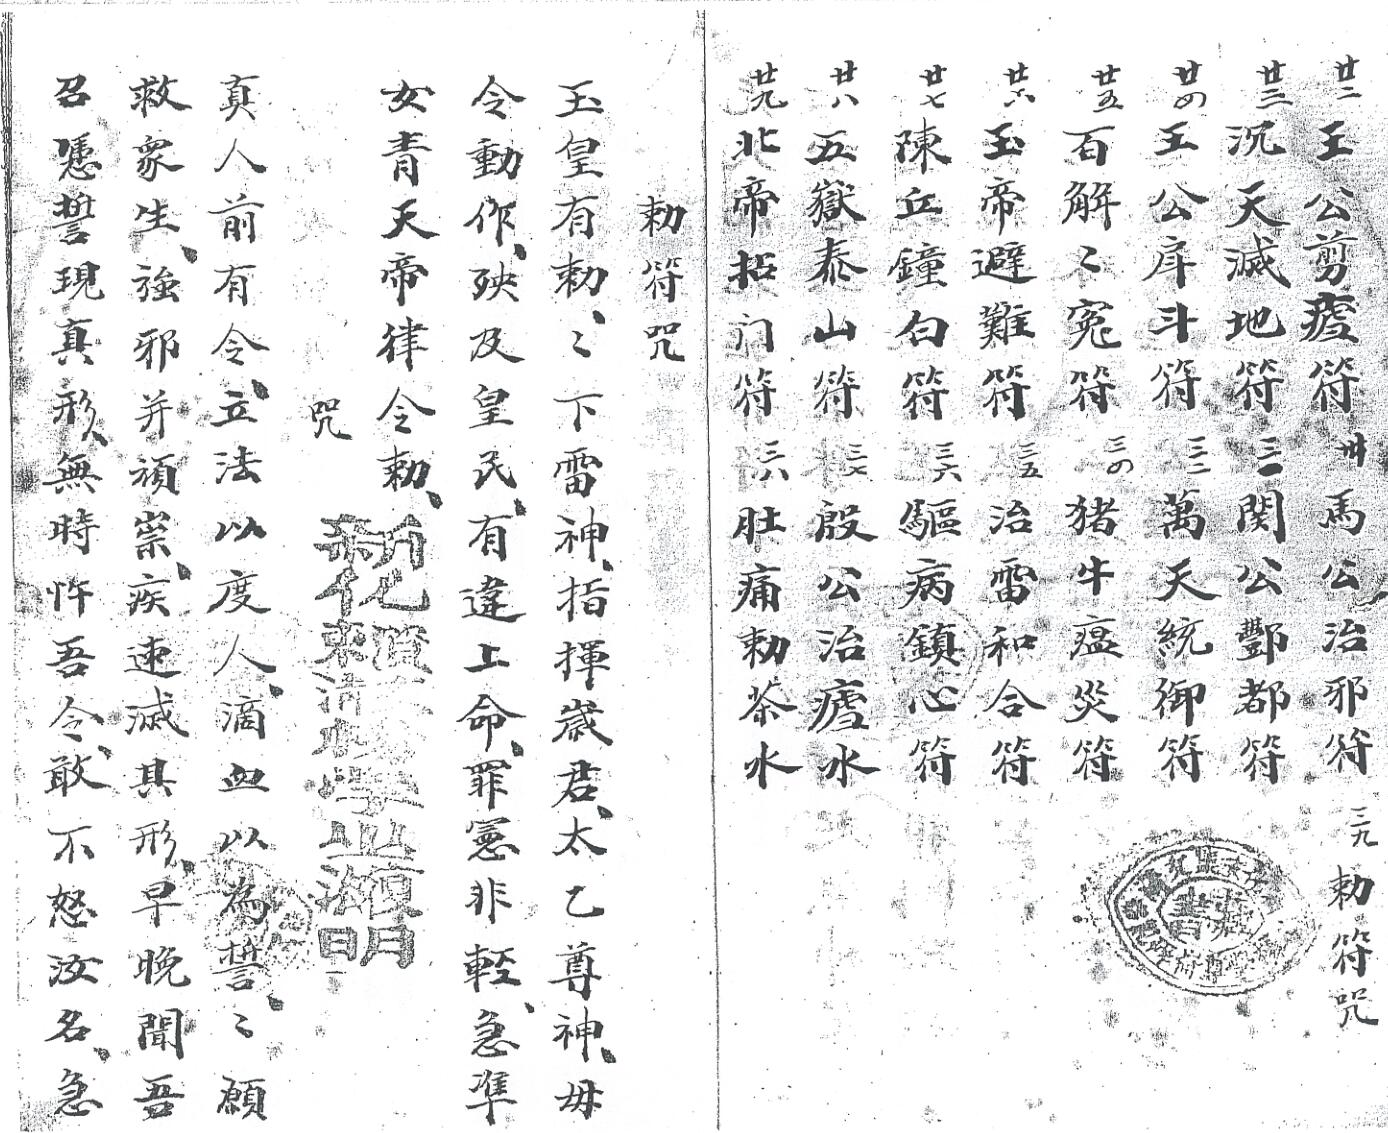 廿二 王公剪瘧符 卅 馬公治邪符 三九 勅符咒
廿三 沉天滅地符 三一 関公酆都符
廿四 王公斗符 三二 萬天統御符
廿五 百解〻冤符 三四 猪牛瘟災符
廿六 玉帝避難符 三五 治雷和合符
廿七 陳丘鐘勾符 三六 驅病鎮心符
廿八 五嶽泰山符 三七 殷公治瘧水
廿九 北帝拓门符 三八 肚痛勅茶水
勅符咒
玉皇有勅、〻下雷神、指揮歲君、太乙尊神、毋
令動作、殃及皇民、有違上命、罪憲非輕、急準
女青天帝律令勅、
咒
真人前有令、立法以度人、滴血以為誓、〻願
救衆生、強邪并頑祟、疾速滅其形、早晚聞吾
召憑誓現真形、無時忤吾令、敢不怒汝名、急